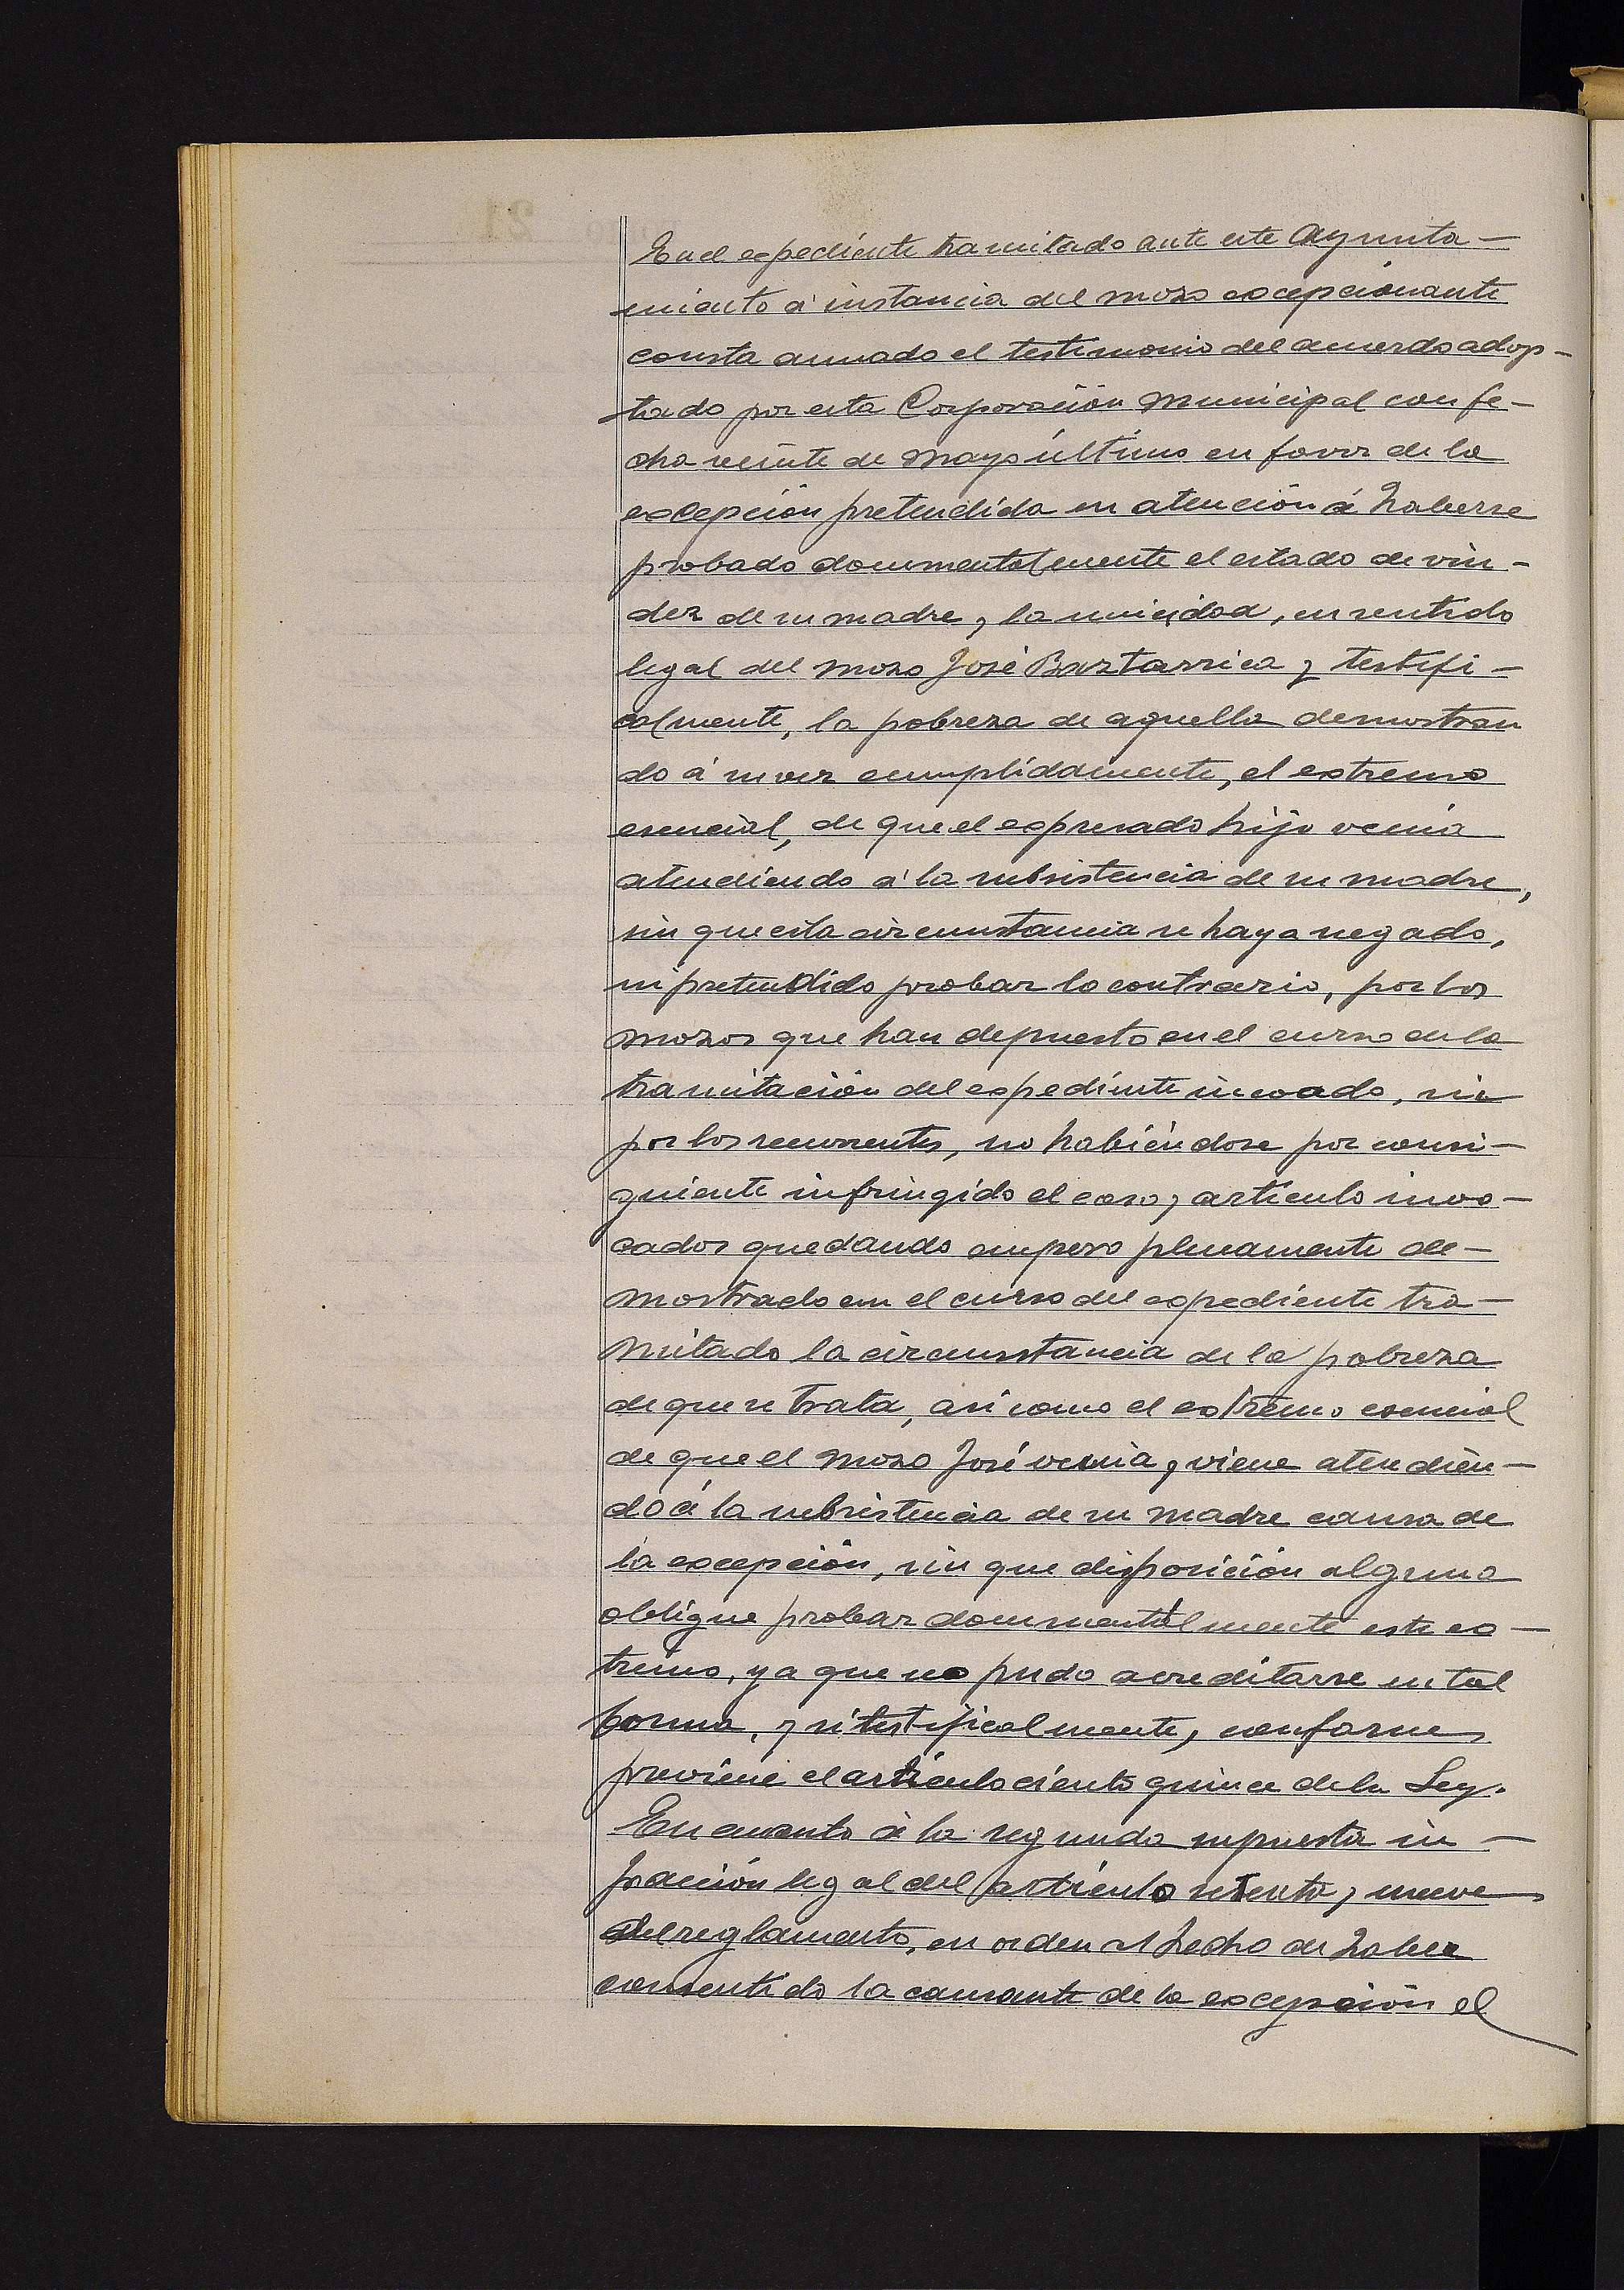 En el expediente tramitado ante este Ayunta-
miento á instancia del mozo excepcionante
consta aunado el testimonio del acuerdo adop-
tado por esta Corporación Municipal con fe-
cha veinte de Mayo último en favor de la
excepción pretendida en atención á haberse
probado documentalmente el estado de viu-
dez de su madre, y la unicidad, en sentido
legal del mozo José Baztarrica y testifi-
calmente, la pobreza de aquella demostran
do á su vez cumplidamente, el extremo
esencial, de que el expresado hijo venia
atendiendo á la subsistencia de su madre,
sin que esta circunstancia se haya negado,
ni pretendido probar lo contrario, por los
mozos que han depuesto en el curso de la
tramitación del expediente incoado, ni
por los recurrentes, no habiéndose por consi-
guiente infringido el caso y artículo invo-
cados quedando empero plenamente de-
mostrado en el curso del expediente tra-
mitado la circunstancia de la pobreza
de que se trata, asi como el extremo esencial
de que el mozo José venia y viene atendien-
do á la subsistencia de su madre causa de
la excepción, sin que disposición alguna
obligue probar documentalmente este ex-
tremo, ya que no pudo acreditarse en tal
forma, y si testificalmente, conforme
previene el artículo ciento quince de la Ley.
En cuanto á la segunda supuesta in-
fracción legal del artículo setenta y nueve
del reglamento, en orden al hecho de haber
consentido la causante de la excepción el